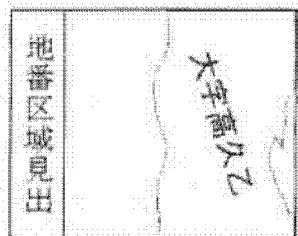 地番区域見出
大字高久乙